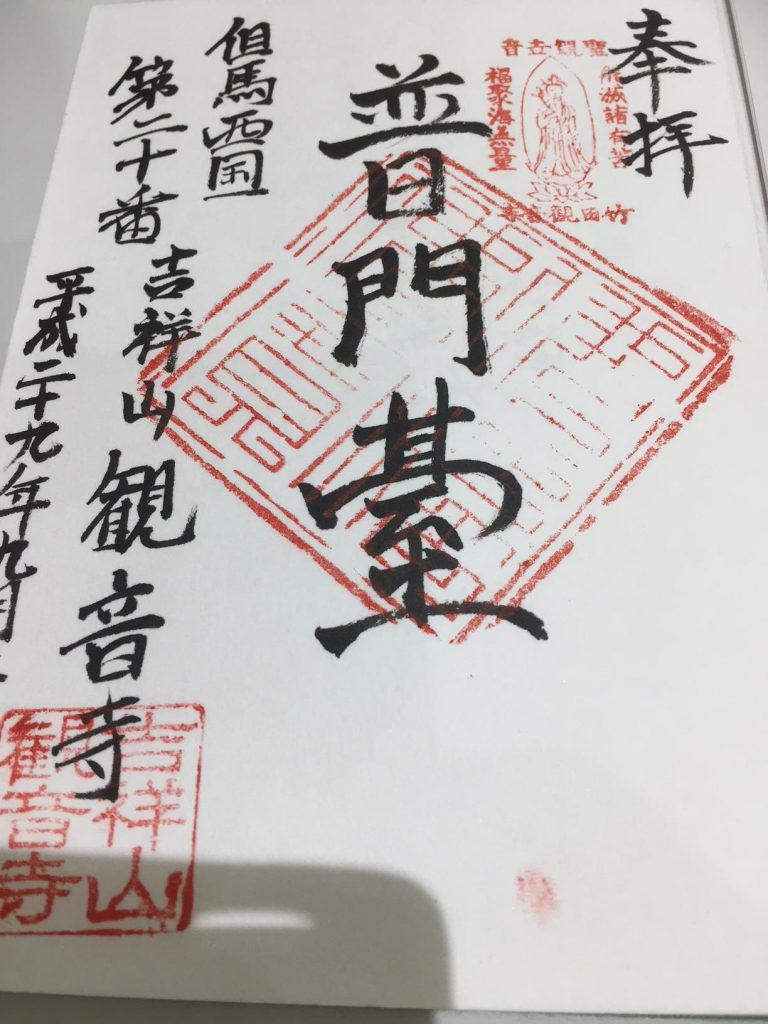 奉拝
聖観世音
能滅諸有苦
福聚海無量
竹田観音寺
普門臺
但馬西国
第二十番
吉祥山観音寺
平成二十九年九月
吉祥山
観音寺